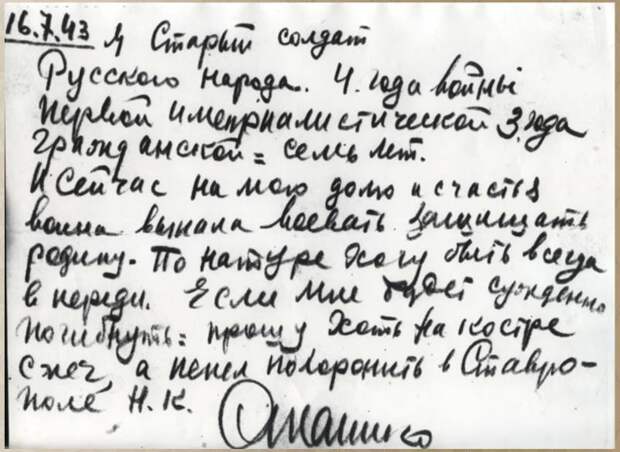 16.7.43 Я Старый солдат
Русского народа. 4. года войны
первой империалистической 3. года
гражданской = семь лет.
И сейчас на мою долю и счастья
воина выпала воевать защищать
родину. По натуре хочу быть всегда
в переди. Если мне будет сужденно
погибнуть = прошу хоть на костре
сжеч, а пепел похоронить в Ставро-
поле Н.К.